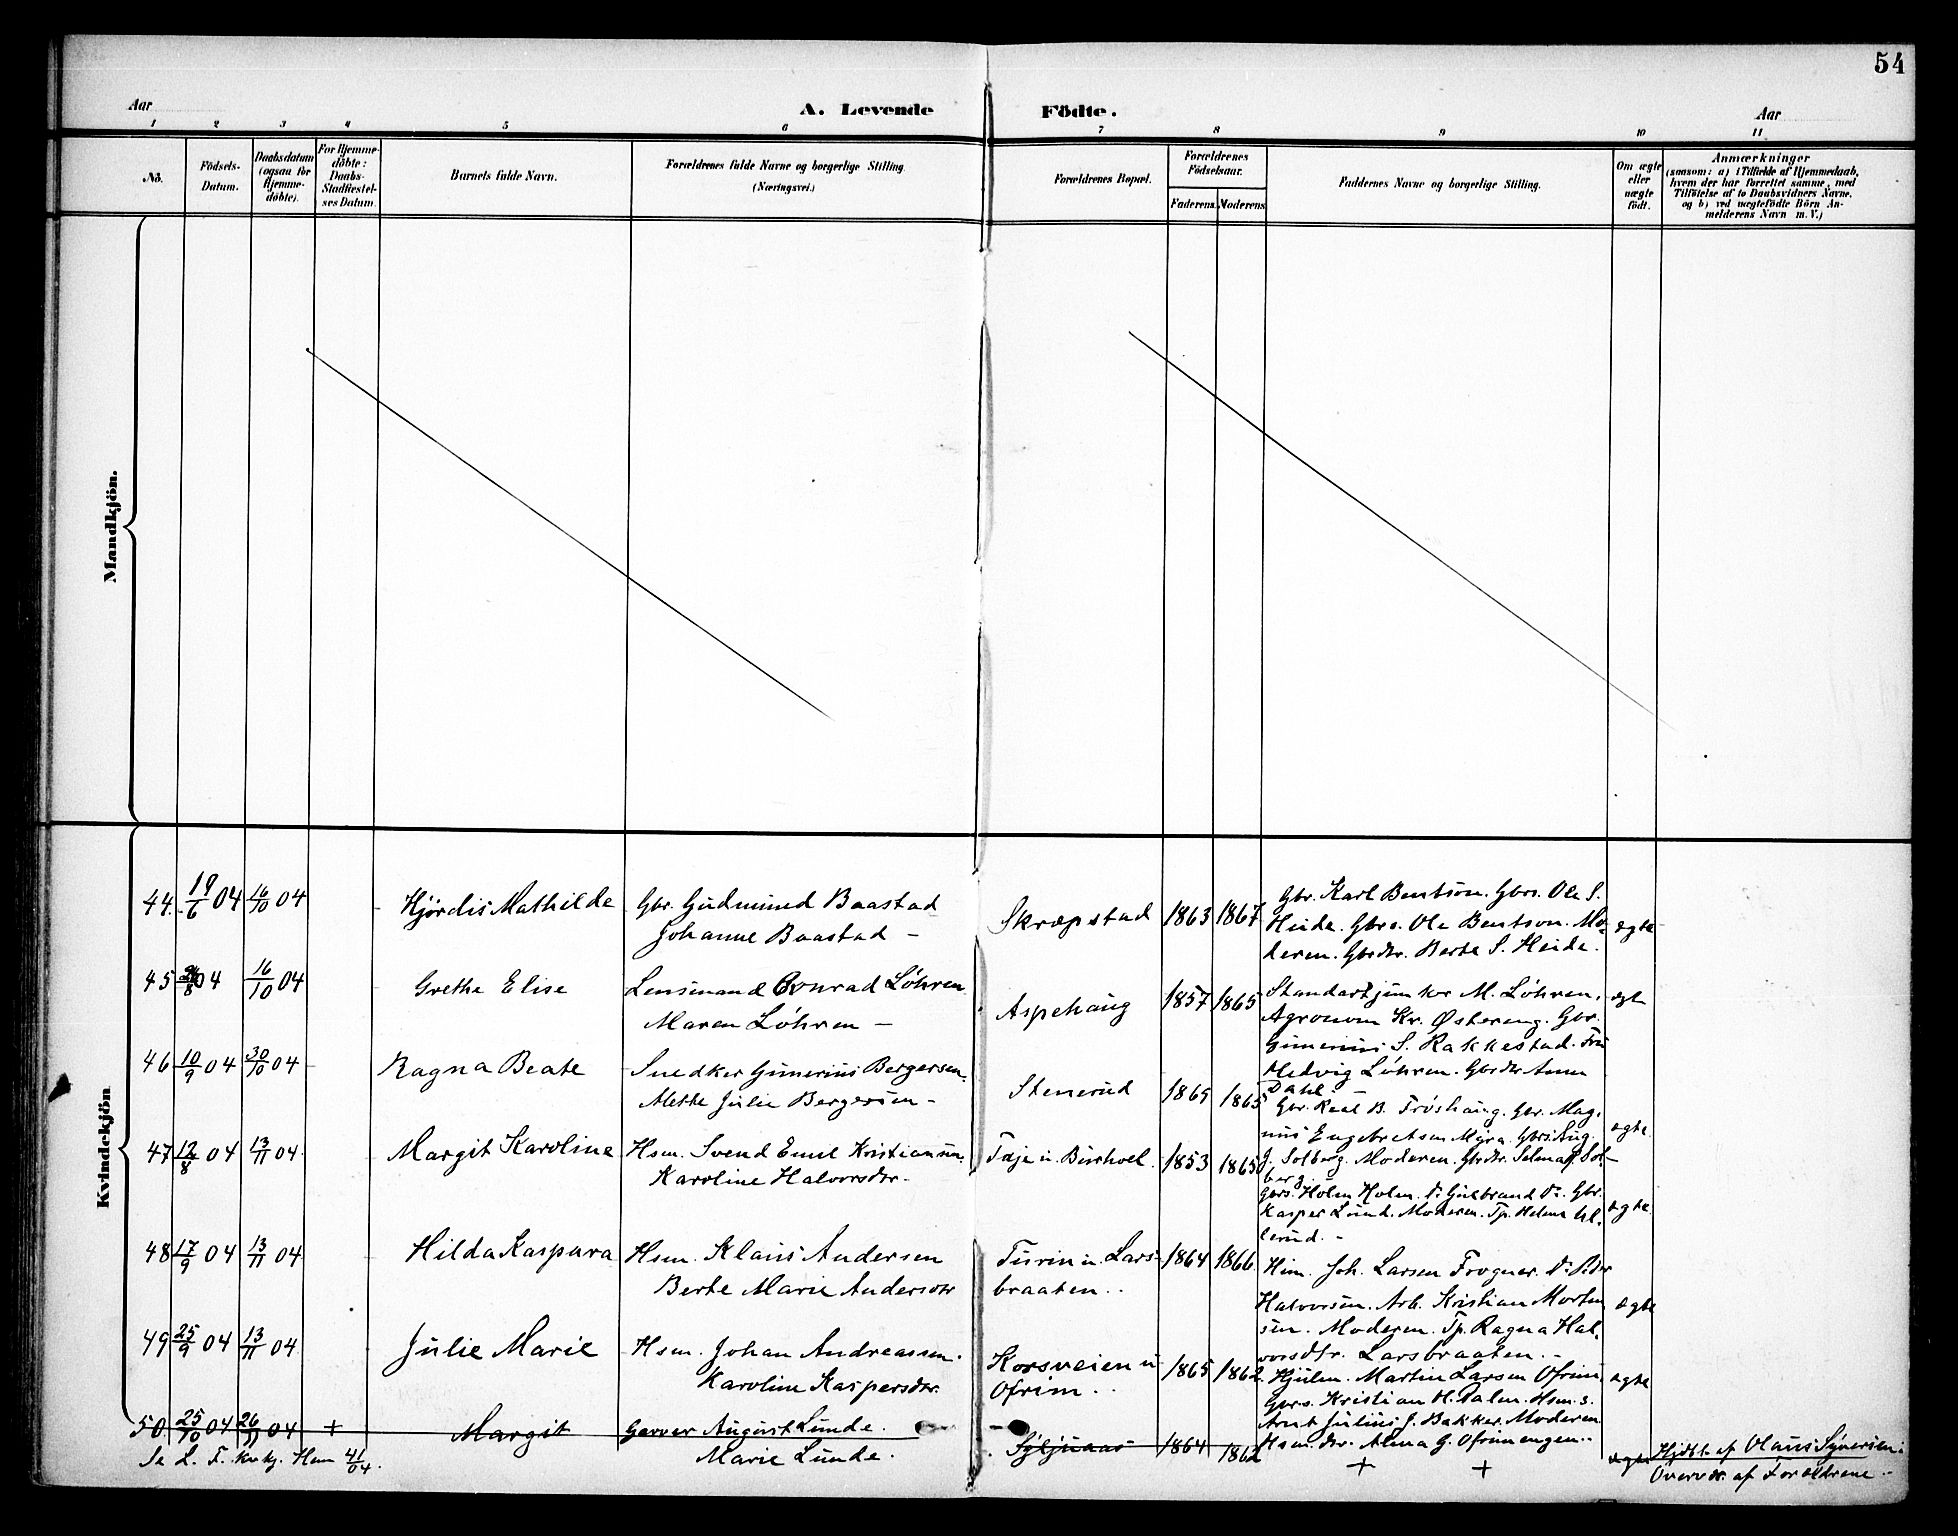 54
Aar
A. Levende Födte.
Aar
1 2 3 4 5 6 7 8 9 10 11
No.
Födsels-
Datum.
Daabsdatum
(ogsaa for
Hjemme-
döbte).
For Hjemme-
döbte:
Daabs-
Stadfæstel-
ses Datum.
Barnets fulde Navn.
Forældrenes fulde Navne og borgerlige Stilling
(Næringsvei.)
Forældrenes Bopæl.
Forældrenes
Födselsaar.
Faderens. Moderens.
Faddernes Navne og borgerlige Stilling.
Om ægte
eller
uægte
födt.
Anmærkninger
(saasom: a) i Tilfælde af Hjemmedaab,
hvem der har forrettet samme, med
Tilföielse af to Daabsvidners Navne,
og b) ved uægtefödte Börn An-
melderens Navn m. V.)
Mandkjön.
Kvindekjön
44. 19/6 04 16/10 04
Hjördis Mathilde
Gbr. Gudmund Baastad
Johanne Baastad –
Skræpstad
1863 1867
Gbr. Karl Bentson. Gbrs. Ole S.
Heide. Gbrs. Ole Bentson. Mo-
deren. Gbrdtr. Berte S. Heide.
ægte
45 /8 04 16/10 04
Grethe Elise
Lensmand Conrad Löhren
Maren Löhren –
Aspehaug
1857 1865
Standartjunker M. Löhren.
Agronom Kr. Østereng. Gbr.
Gunerius S. Rakkestad. Fru
Hedvig Löhren. Gbrdtr Anna
Dahl. –
ægte
46 10/9 04 30/10 04
Ragna Beate
Snedker Gunerius Bergersen.
Mathe Julie Bergersen –
Stenerud
1865 1865
Gbr. Karl B. Fröshaug. Gbr. Mag-
nus Engebretsen Myra. Gbrs. Aug.
J. Solberg. Moderen. Gbrdtr. Selma J. Sol-
berg.
ægte
47 12/8 04 13/11 04
Margit Karoline
Hsm. Svend Emil Kristiansen.
Karoline Halvorsdtr.
Taje u. Burhoel.
1853 1865
Gbrs. Holm Holm. Do Gulbrand Do. Gbr.
Kasper Lund. Moderen. Tp. Helene Ul-
lerud. –
ægte
48 17/9 04 13/11 04
Hilda Kaspara
Hsm. Klaus Andersen
Berte Marie Andersdtr
Turin u. Lars-
braaten..
1864 1866
Hsm. Joh. Larsen Frogner. Do Peder
Halvorsen. Arb. Kristian Morten
sen. Moderen. Tp. Ragna Hal-
vorsdtr. Larsbraaten. –
ægte
49 25/9 04 13/11 04
Julie Marie
Hsm. Johan Andreassen.
Karoline Kaspersdtr.
Korsveien u
Ofrim..
1865 1862
Hjulm. Martin Larsen Ofrim
Gbrs. Kristian H. Dalen. Hsm.s.
Arnt Julius J. Bakker. Moderen
Hsm. dtr. Alma G. Ofrimengen..
ægte
50. 25/10 04 26/11 04 +
Margit
Garver August Lunde.
Marie Lunde.
1864 1862
+ +
ægte
Hjdbt. af Olaus Syversen.
Overvær. af Forældrene –
Se L. F. 4/04.